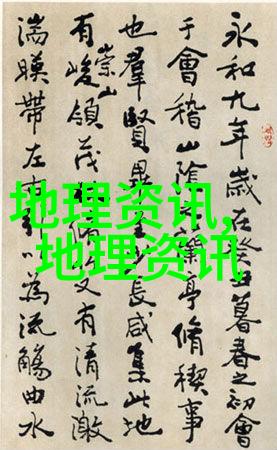 永和九年歲在癸丑暮春之初會
于會稽山陰蘭亭脩稧事
也羣賢畢長咸集此地
有崇山峻領茂脩竹又有清流激
湍暎帶左右以為流觴曲水
地理资讯,
地理资讯